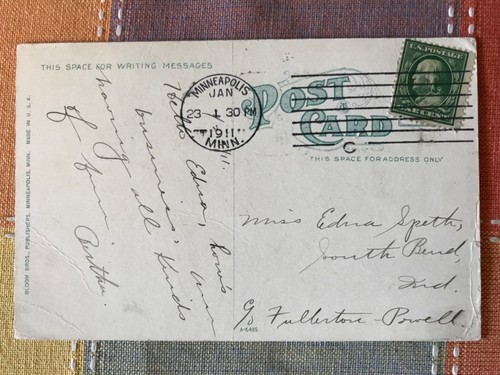 THIS SPACE FOR WRITING MESSAGES
MINNEAPOLIS
JAN
23 - 4 30 PM
1911
MINN.
C
U.S. POSTAGE
POST
CARD
THIS SPACE FOR ADDRESS ONLY
BLOOM BROS. PUBLISHERS. MINNEAPOLIS, MINN. MADE IN U.S.A.
A-6485
11.
Hello Edna, how's
business,
having all kinds
of fun. Arthur.
Miss Edna Speth,
South Bend,
Ind.
c/o Fullerton-Powell